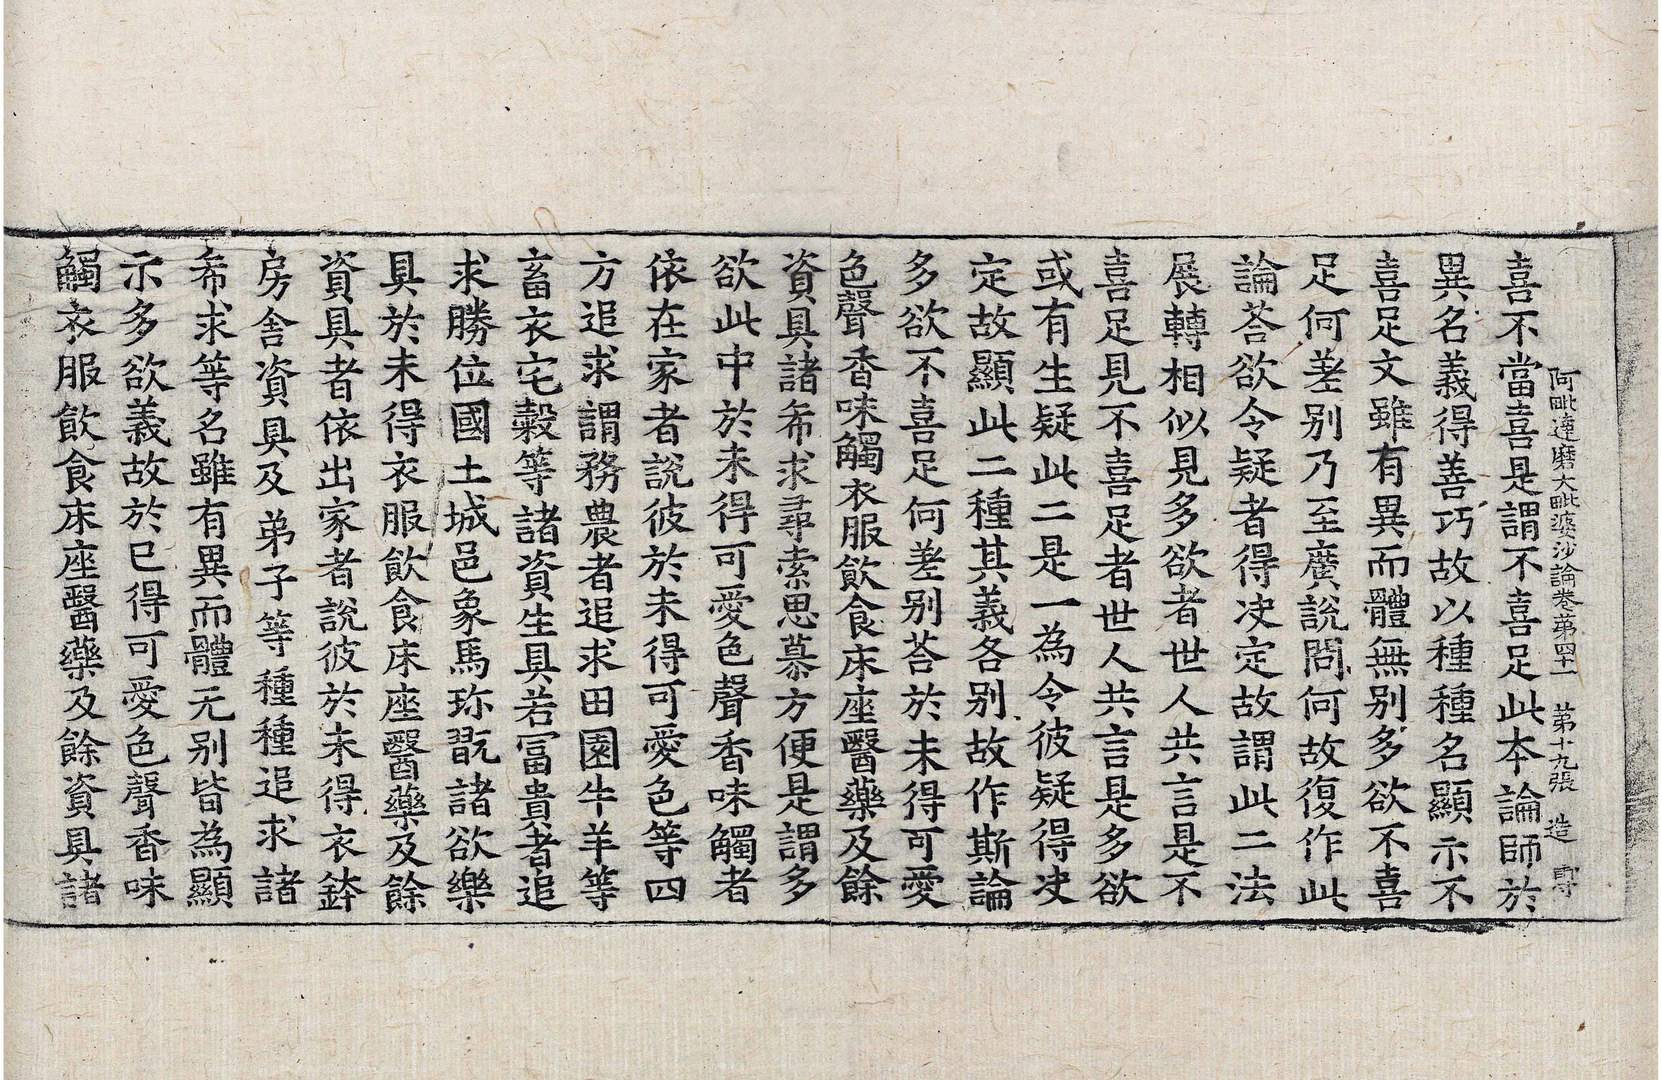 阿毗達磨大毗婆沙論卷苐四十一 苐十九張 造 尊
喜不當喜是謂不喜足此本論師於
異名義得善巧故以種種名顯示不
喜足文雖有異而體無别多欲不喜
足何差别乃至廣說問何故復作此
論荅欲令疑者得决定故謂此二法
展轉相似見多欲者世人共言是不
喜足見不喜足者世人共言是多欲
或有生疑此二是一為令彼疑得决
定故顯此二種其義各别故作斯論
多欲不喜足何差别荅於未得可愛
色聲香味觸衣服飲食床座醫藥及餘
資具諸希求尋索思慕方便是謂多
欲此中於未得可愛色聲香味觸者
依在家者說彼於未得可愛色等四
方追求謂務農者追求田園牛羊等
畜衣宅穀等諸資生具若冨貴者追
求勝位國土城邑象馬珎翫諸欲樂
具於未得衣服飲食床座醫藥及餘
資具者依出家者說彼於未得衣鉢
房舎資具及弟子等種種追求諸
希求等名雖有異而體无别皆為顯
示多欲義故於已得可愛色聲香味
觸衣服飲食床座醫藥及餘資具諸